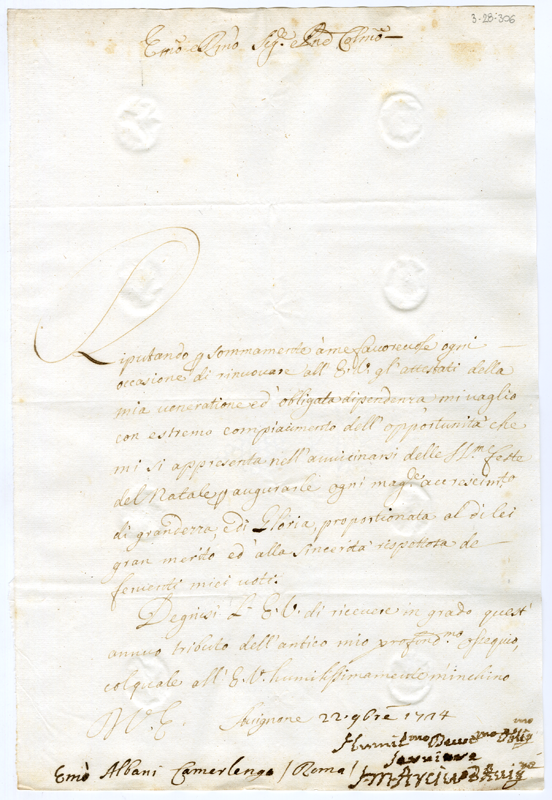 3-28-306
Emo e Rmo Sigre Pnd Colmo
Riputando p sommamente à me favorevole ogni
occasione di rinuovare all' E.V. gl'attestati della
mia veneratione ed' obligata dipendenza mi vaglio
con estremo compiacimento dell' opportunità che
mi si appresenta nell' avvicinarsi delle SSme feste
del Natale p augurarle ogni magre accrescimto
di grandezza, e di Gloria proportionata al di lei
gran merito ed' alla sincerità rispettosa de
ferventi miei voti.
Degnisi L' E.V. di ricevere in grado quest'
annuo tributo dell' antico mio profondmo ossequio,
col quale all' E.V. humilissimamente m'inchino
22 9bre 1714
Humilmo Devotmo Oblig mo
Servitore
Emo Albani Camerlengo / Roma /